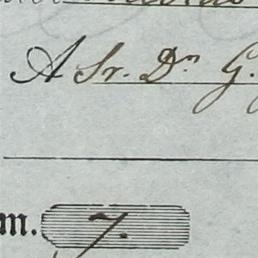 A Sr. Dn G.
m. 7.